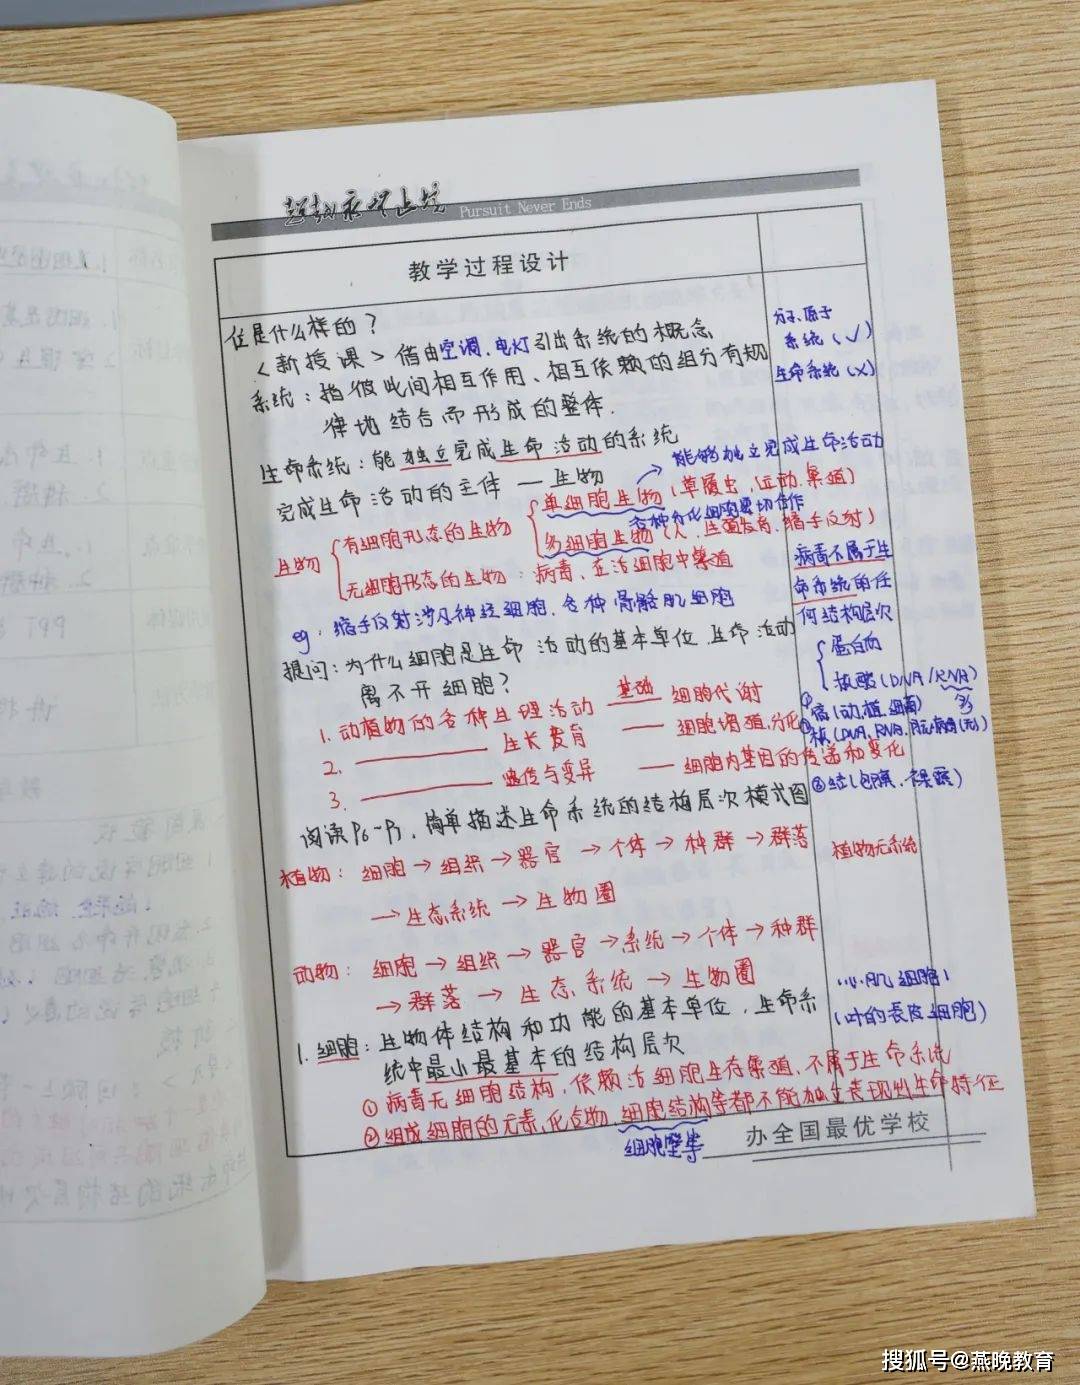 Pursuit Never Ends
教学过程设计
住是什么样的？
<新授课> 借由空调、电灯引出系统的概念
系统：指彼此间相互作用、相互依赖的组分有规
律地结合而形成的整体.
分子、原子
系统（√）
生命系统（×）
生命系统：能独立完成生命活动的系统
完成生命活动的主体 — 生物
能够独立完成生命活动
生物
有细胞形态的生物
单细胞生物（草履虫，运动、繁殖）
各种分化细胞密切合作
多细胞生物（人，生长发育、缩手反射）
无细胞形态的生物：病毒、在活细胞中繁殖
eg：缩手反射涉及神经细胞、各种骨骼肌细胞
病毒不属于生
命系统的任
何结构层次
蛋白质
核酸（DNA/RNA）
多
①宿（动、植、细菌）
②核（DNA、RNA、
③结（包膜、裸露）
提问：为什么细胞是生命活动的基本单位，生命活动
离不开细胞？
1. 动植物的各种生理活动 基础 细胞代谢
2. ———— 生长发育 —— 细胞增殖，分化
3. ———— 遗传与变异 —— 细胞内基因的传递和变化
阅读P6-P7，简单描述生命系统的结构层次模式图
植物：细胞→组织→器官→个体→种群→群落
→生态系统→生物圈
植物无系统
动物：细胞→组织→器官→系统→个体→种群
→群落→生态系统→生物圈
（心肌细胞）
（叶的表皮细胞）
1. 细胞：生物体结构和功能的基本单位，生命系
统中最小最基本的结构层次
①病毒无细胞结构，依赖活细胞生存繁殖，不属于生命系统
②组成细胞的元素、化合物，细胞结构等都不能独立表现出生命特征
细胞壁等
办全国最优学校
搜狐号@燕晚教育